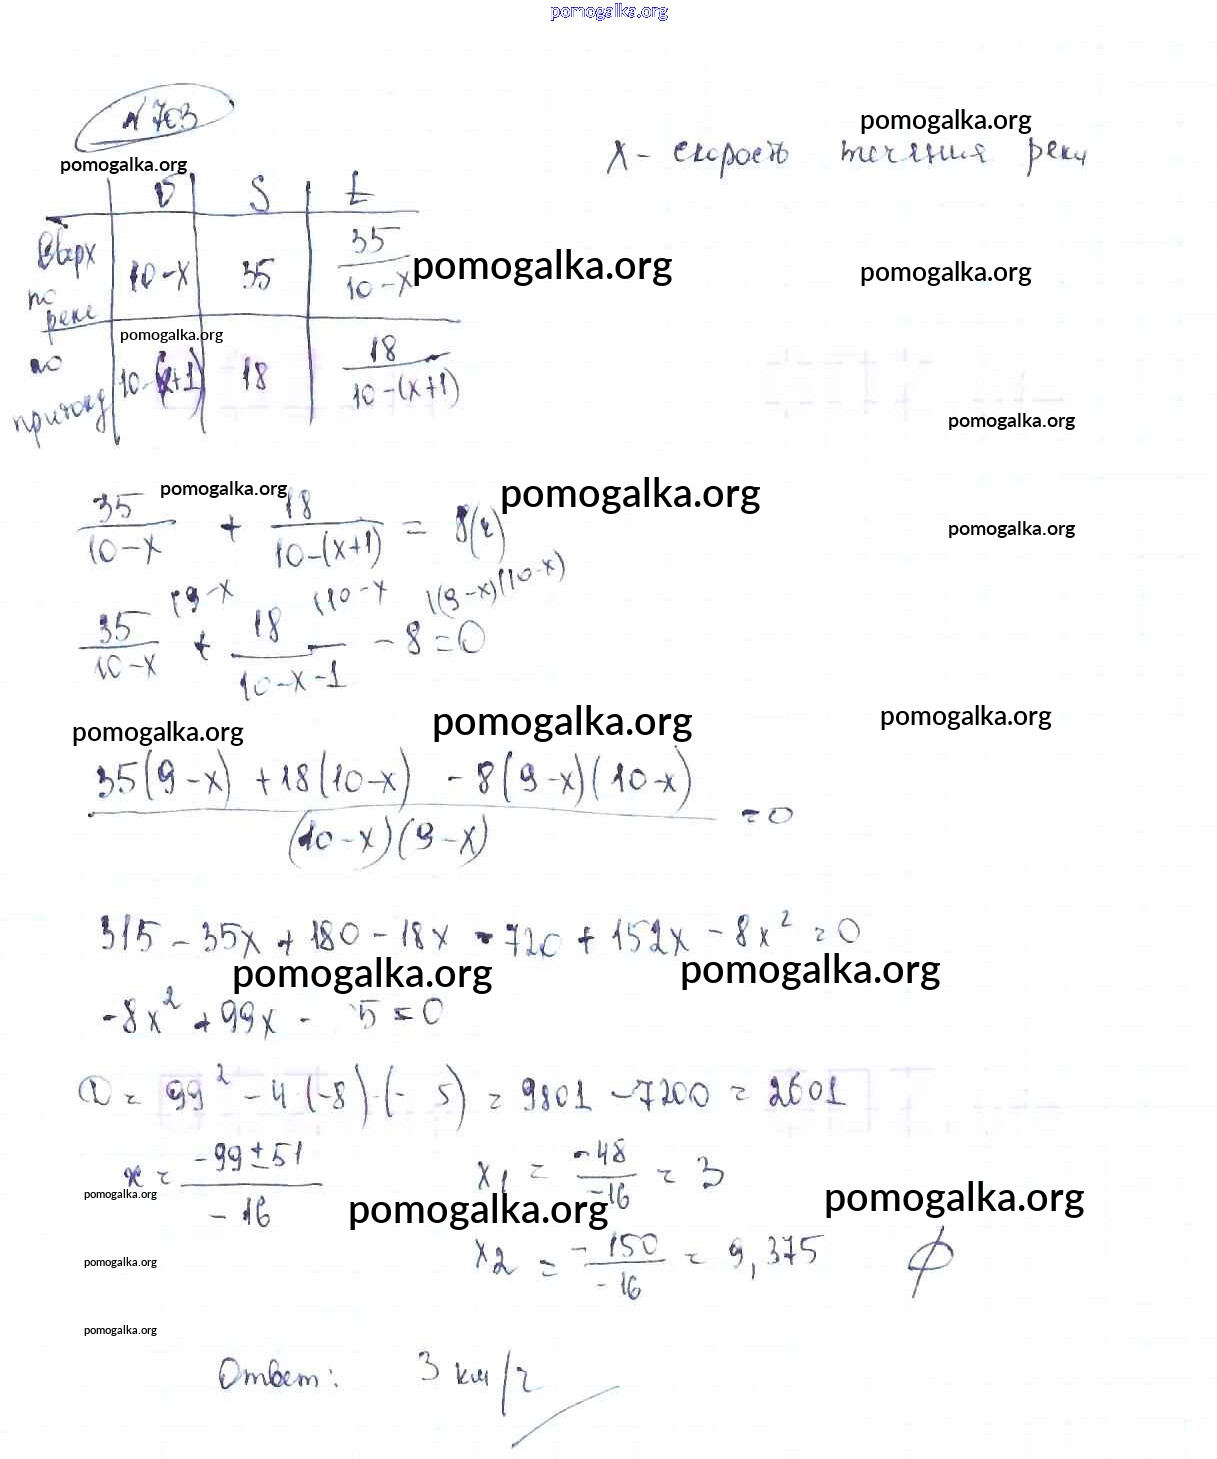 pomogalka.org
N 703
pomogalka.org
pomogalka.org
x - скорость течения реки
V S t
Вверх по реке 10-x 35 35/(10-x)
pomogalka.org
pomogalka.org
pomogalka.org
по притоку 10-(x+1) 18 18/(10-(x+1))
pomogalka.org
pomogalka.org
pomogalka.org
pomogalka.org
35/(10-x) + 18/(10-(x+1)) = 8(ч)
(9-x (10-x ((9-x)(10-x)
35/(10-x) + 18/(10-x-1) - 8 = 0
pomogalka.org
pomogalka.org
pomogalka.org
(35(9-x) + 18(10-x) - 8(9-x)(10-x))/((10-x)(9-x)) = 0
315 - 35x + 180 - 18x - 720 + 152x - 8x² = 0
pomogalka.org
pomogalka.org
-8x² + 99x - 5 = 0
D = 99² - 4·(-8)·(- 5) = 9801 - 7200 = 2601
x = (-99±51)/(-16) x1 = (-48)/(-16) = 3
pomogalka.org
pomogalka.org
pomogalka.org
x2 = (-150)/(-16) = 9,375 ф
pomogalka.org
pomogalka.org
Ответ: 3 км/ч